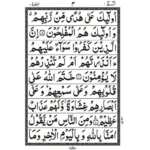 ٣
أُولَٰئِكَ عَلَىٰ هُدًى مِّنْ رَّبِّهِمْ
وَأُولَٰئِكَ هُمُ الْمُفْلِحُونَ إِنَّ
الَّذِينَ كَفَرُوا سَوَاءٌ عَلَيْهِمْ
ءَأَنْذَرْتَهُمْ أَمْ لَمْ تُنْذِرْهُمْ
لَا يُؤْمِنُونَ خَتَمَ اللَّهُ عَلَىٰ
قُلُوبِهِمْ وَعَلَىٰ سَمْعِهِمْ وَعَلَىٰ
أَبْصَارِهِمْ غِشَاوَةٌ وَلَهُمْ عَذَابٌ
عَظِيمٌ وَمِنَ النَّاسِ مَنْ يَقُولُ
آمَنَّا بِاللَّهِ وَبِالْيَوْمِ الْآخِرِ وَمَا